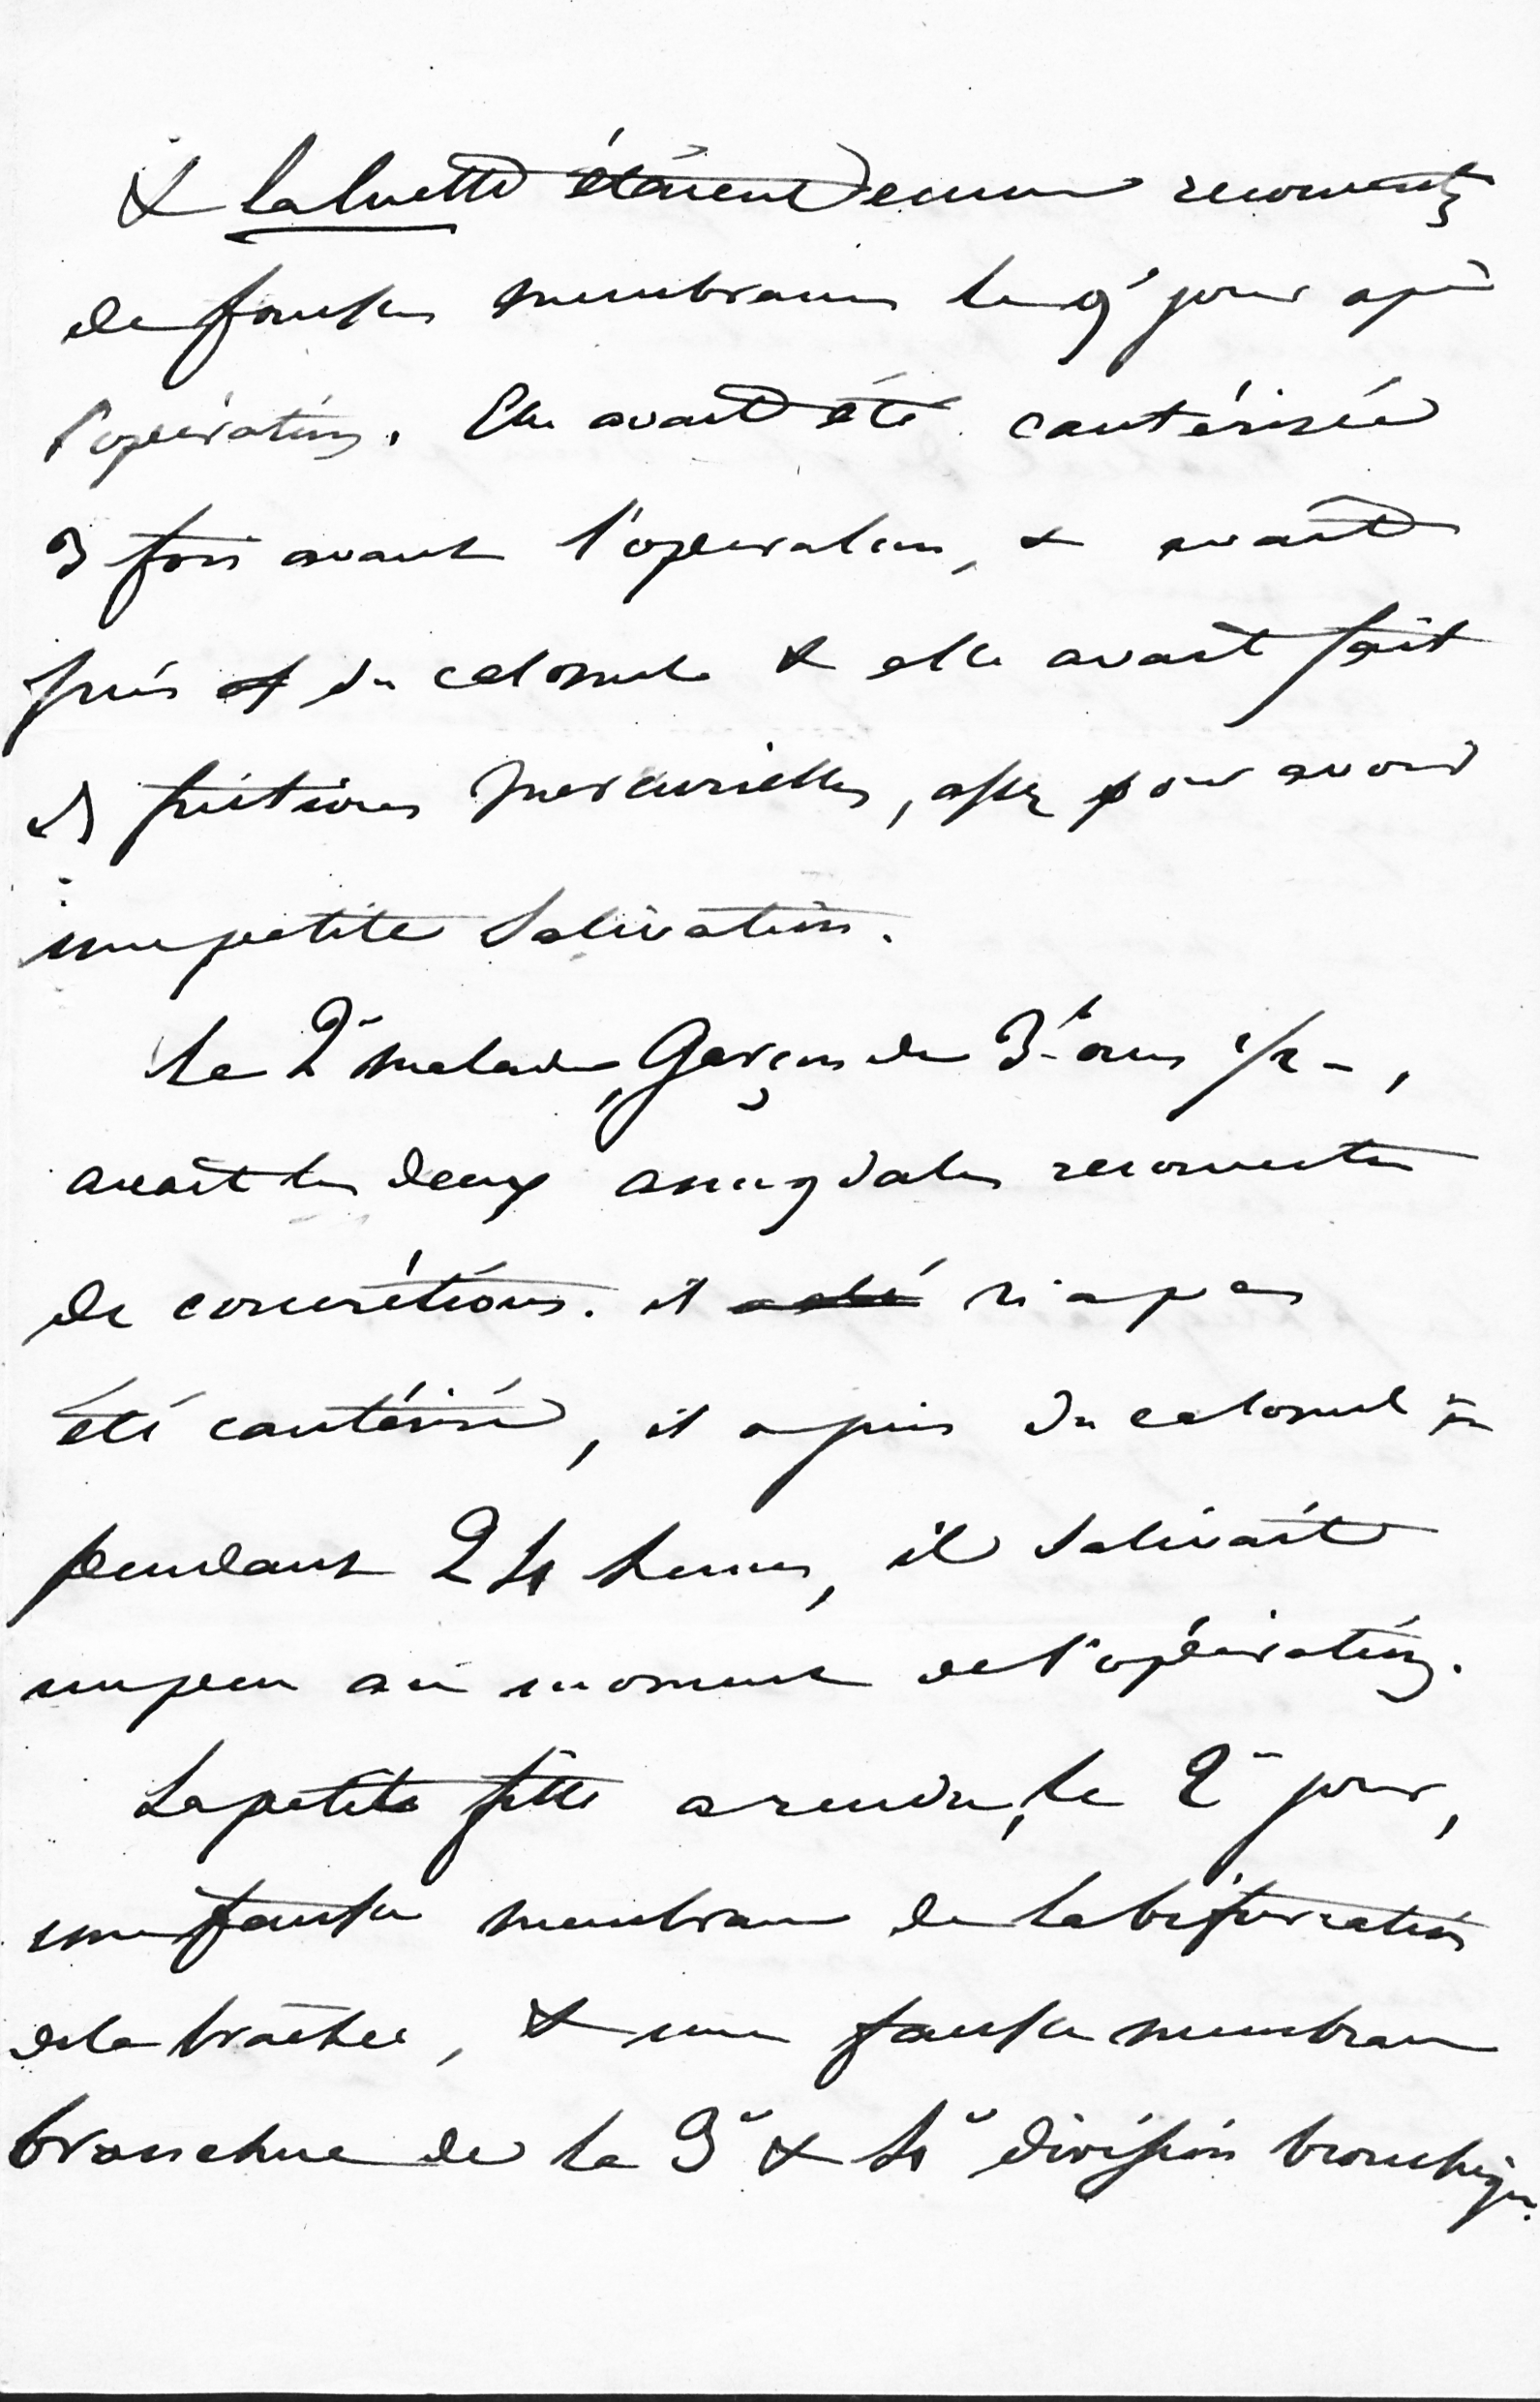 & la luette étaient encore recouverts
de fausses membranes le 9e jour après
l'opération. Elle avait été cautérisée
3 fois avant l'opération, & avait
pris du calomel & elle avait fait
des frictions mercurielles, assez pour avoir
une petite salivation.
Le 2e malade, Garçon de 3 ans 1/2 -,
avait les deux amygdales recouvertes
de concrétions. il n'a pas
été cautérisé, il a pris du calomel
pendant 24 heures, il salivait
un peu au moment de l'opération.
La petite fille a rendu, le 2e jour,
une fausse membrane de la bifurcation
de la trachée, & une fausse membrane
branchue de la 3e & 4e division bronchique.